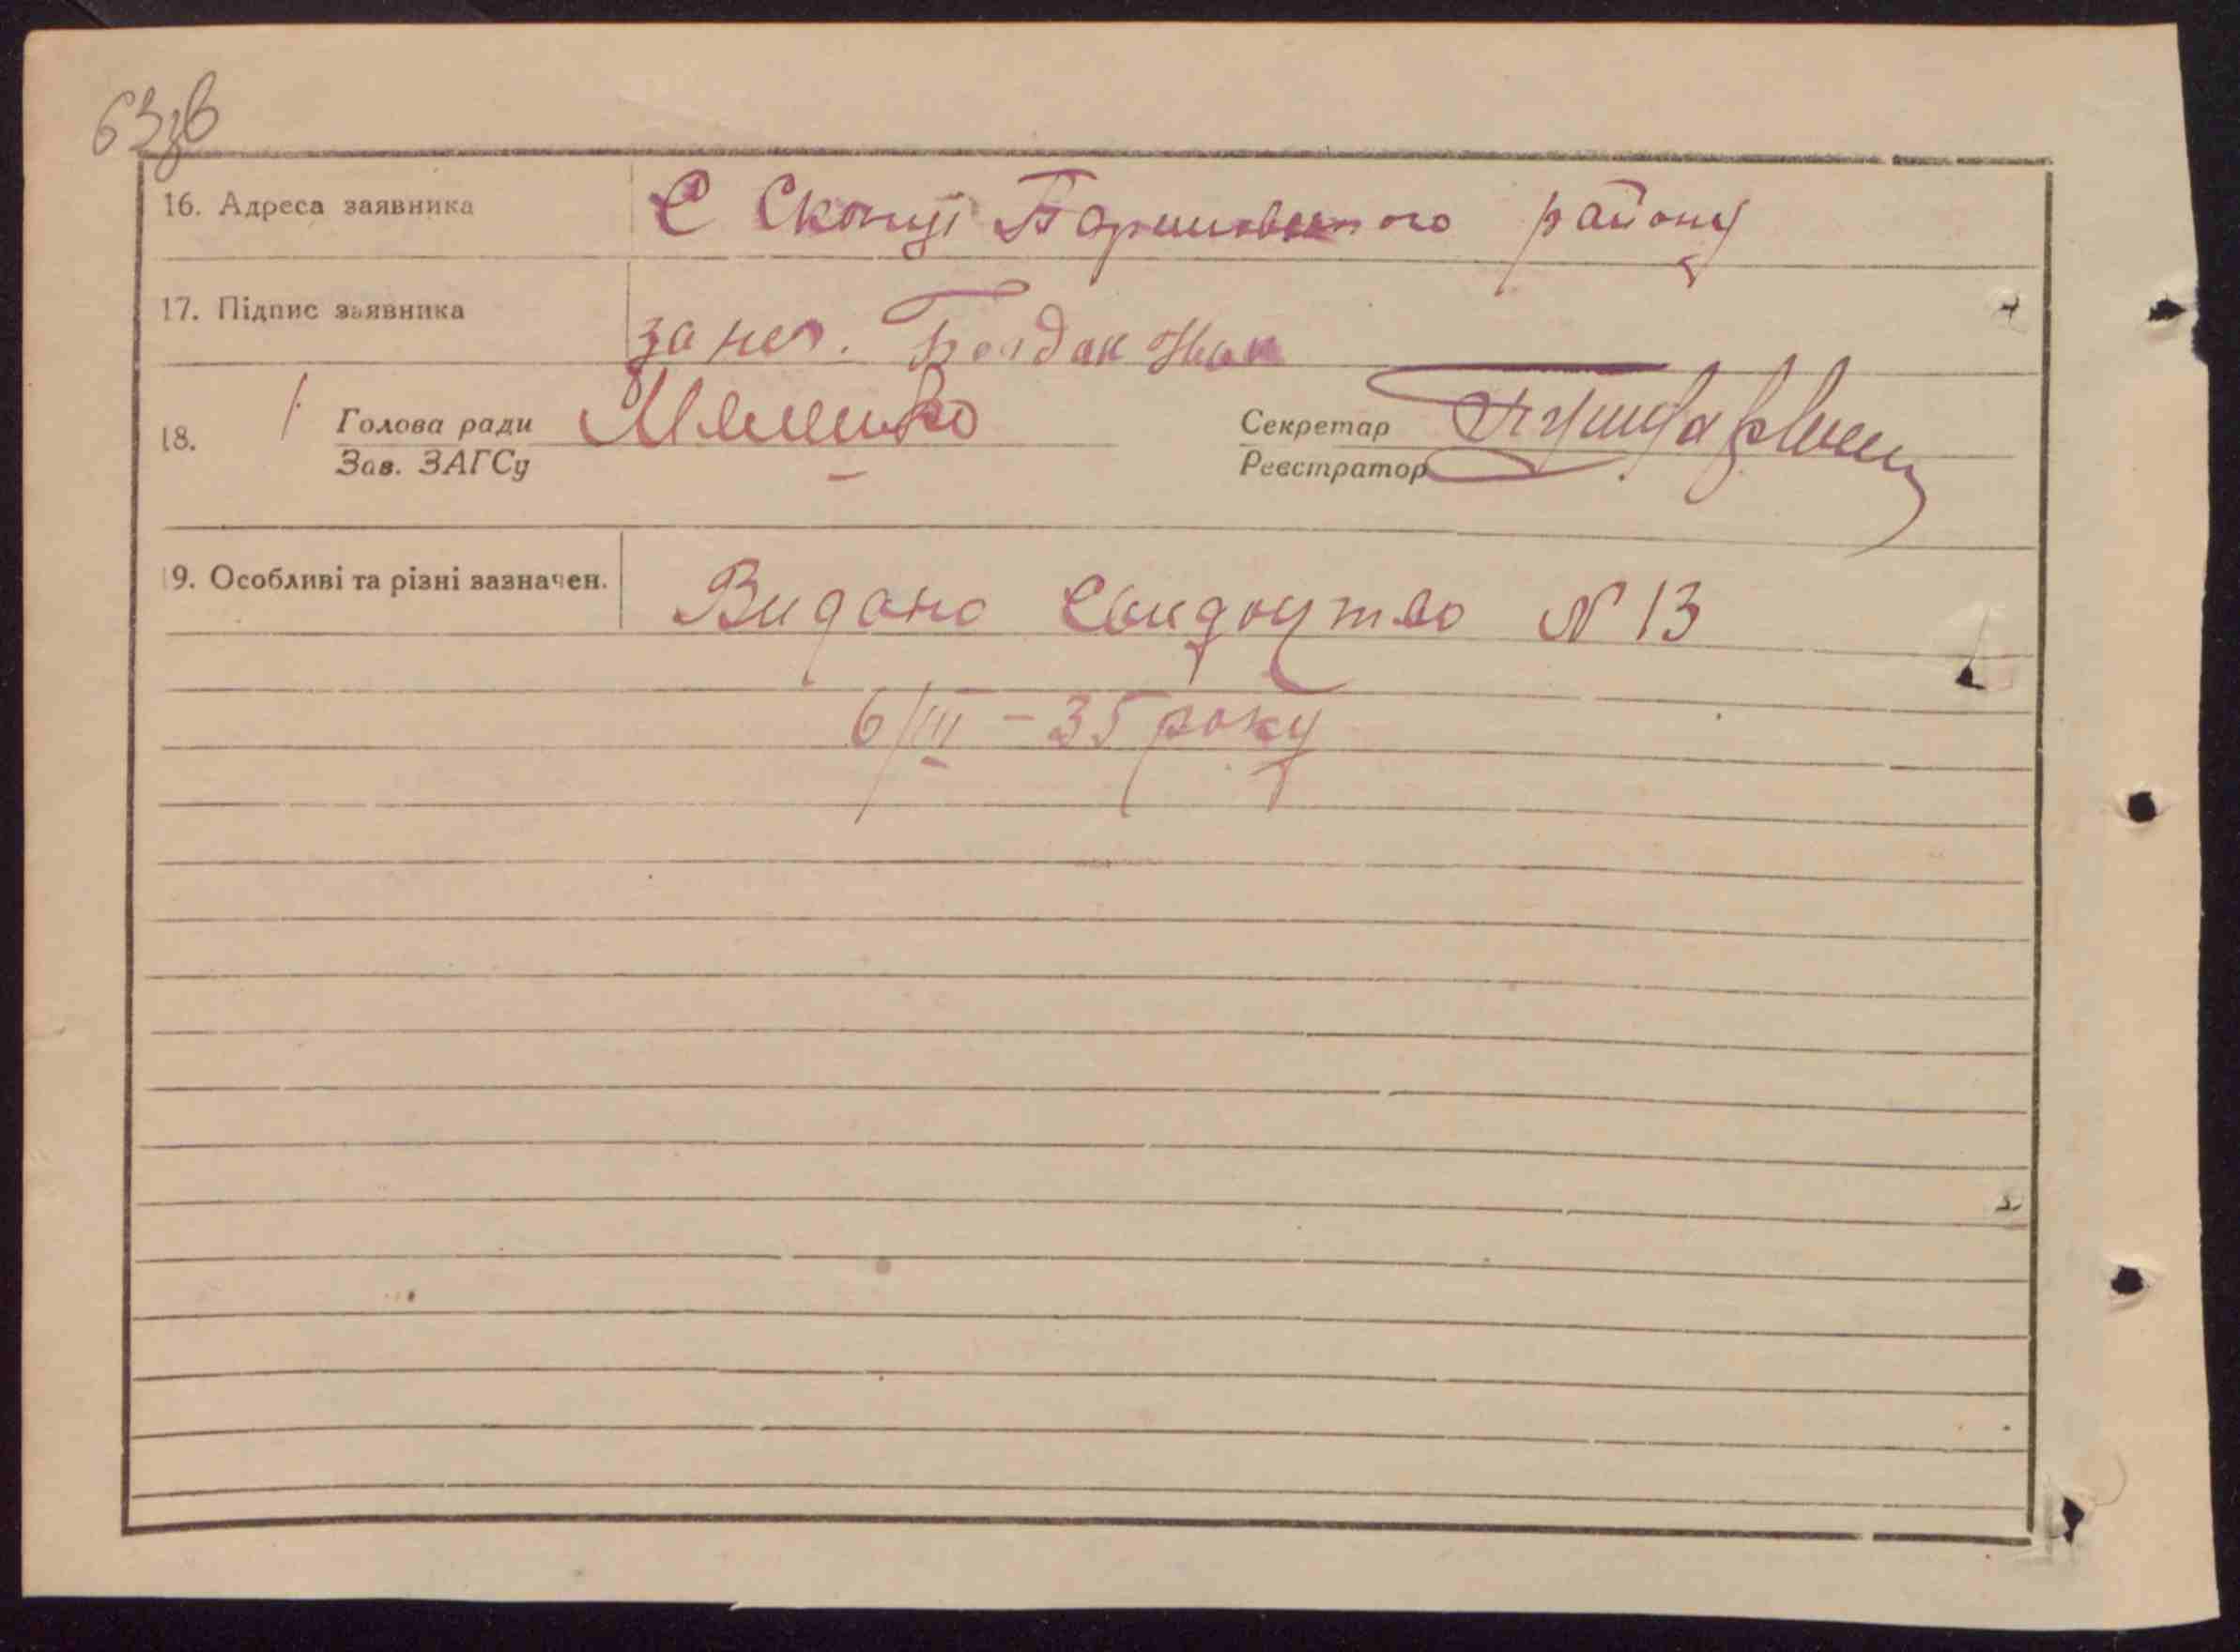 63зв
16. Адреса заявника С Скопці Баришівського району
17. Підпис заявника за неп.
18. Голова ради Секретар
Зав. ЗАГСу Реєстратор
19. Особливі та різні зазначен. Видано Свидоцтво № 13
6/III - 35 року